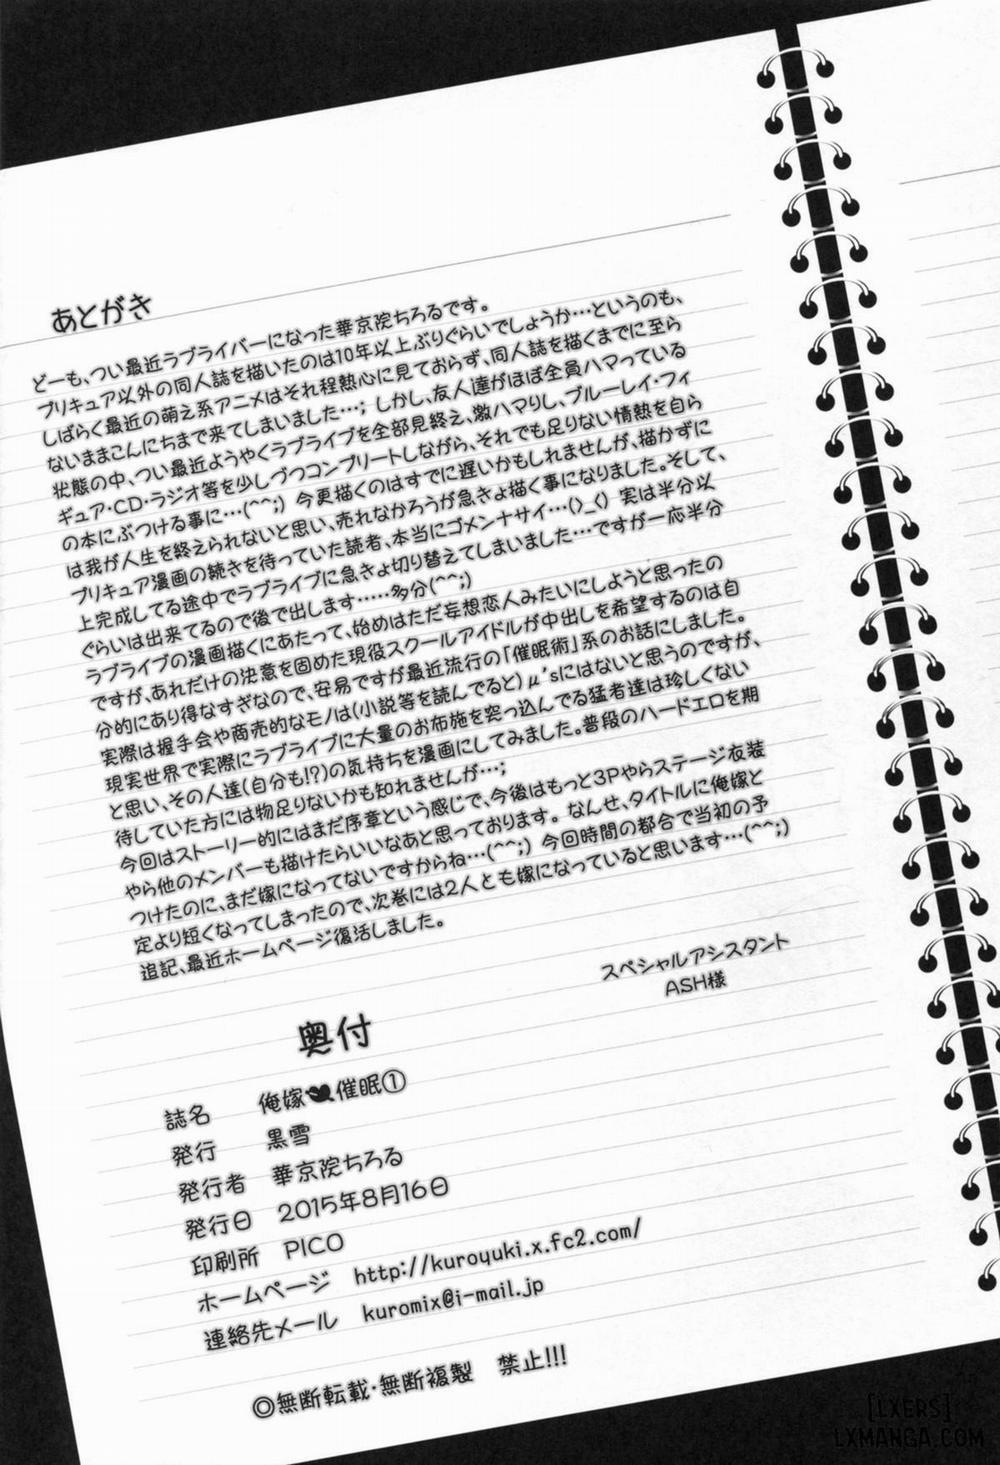 あとがき
どーも、つい最近ラブライバーになった華京院ちろるです。
プリキュア以外の同人誌を描いたのは10年以上ぶりぐらいでしょうか…というのも、
しばらく最近の萌え系アニメはそれ程熱心に見ておらず、同人誌を描くまでに至ら
ないままこんにちまで来てしまいました…; しかし、友人達がほぼ全員ハマっている
状態の中、つい最近ようやくラブライブを全部見終え、激ハマりし、ブルーレイ・フィ
ギュア・CD・ラジオ等を少しづつコンプリートしながら、それでも足りない情熱を自ら
の本にぶつける事に…(^^;) 今更描くのはすでに遅いかもしれませんが、描かずに
は我が人生を終えられないと思い、売れなかろうが急きょ描く事になりました。そして、
プリキュア漫画の続きを待っていた読者、本当にゴメンナサイ…()_() 実は半分以
上完成してる途中でラブライブに急きょ切り替えてしまいました…ですが一応半分
ぐらいは出来てるので後で出します……多分(^^;)
ラブライブの漫画描くにあたって、始めはただ妄想恋人みたいにしようと思ったの
ですが、あれだけの決意を固めた現役スクールアイドルが中出しを希望するのは自
分的にあり得なすぎなので、安易ですが最近流行の「催眠術」系のお話にしました。
実際は握手会や商売的なモノは(小説等を読んでると)μ'sにはないと思うのですが、
現実世界で実際にラブライブに大量のお布施を突っ込んでる猛者達は珍しくない
と思い、その人達(自分も!?)の気持ちを漫画にしてみました。普段のハードエロを期
待していた方には物足りないかも知れませんが…;
今回はストーリー的にはまだ序章という感じで、今後はもっと3Pやらステージ衣装
やら他のメンバーも描けたらいいなあと思っております。なんせ、タイトルに俺嫁と
つけたのに、まだ嫁になってないですからね…(^^;) 今回時間の都合で当初の予
定より短くなってしまったので、次巻には2人とも嫁になっていると思います…(^^;)
追記、最近ホームページ復活しました。
スペシャルアシスタント
ASH様
奥付
誌名 俺嫁催眠①
発行 黒雪
発行者 華京院ちろる
発行日 2015年8月16日
印刷所 PICO
ホームページ http://kuroyuki.x.fc2.com/
連絡先メール kuromix@i-mail.jp
◎無断転載・無断複製 禁止!!!
[LXERS]
LXMANGA.COM